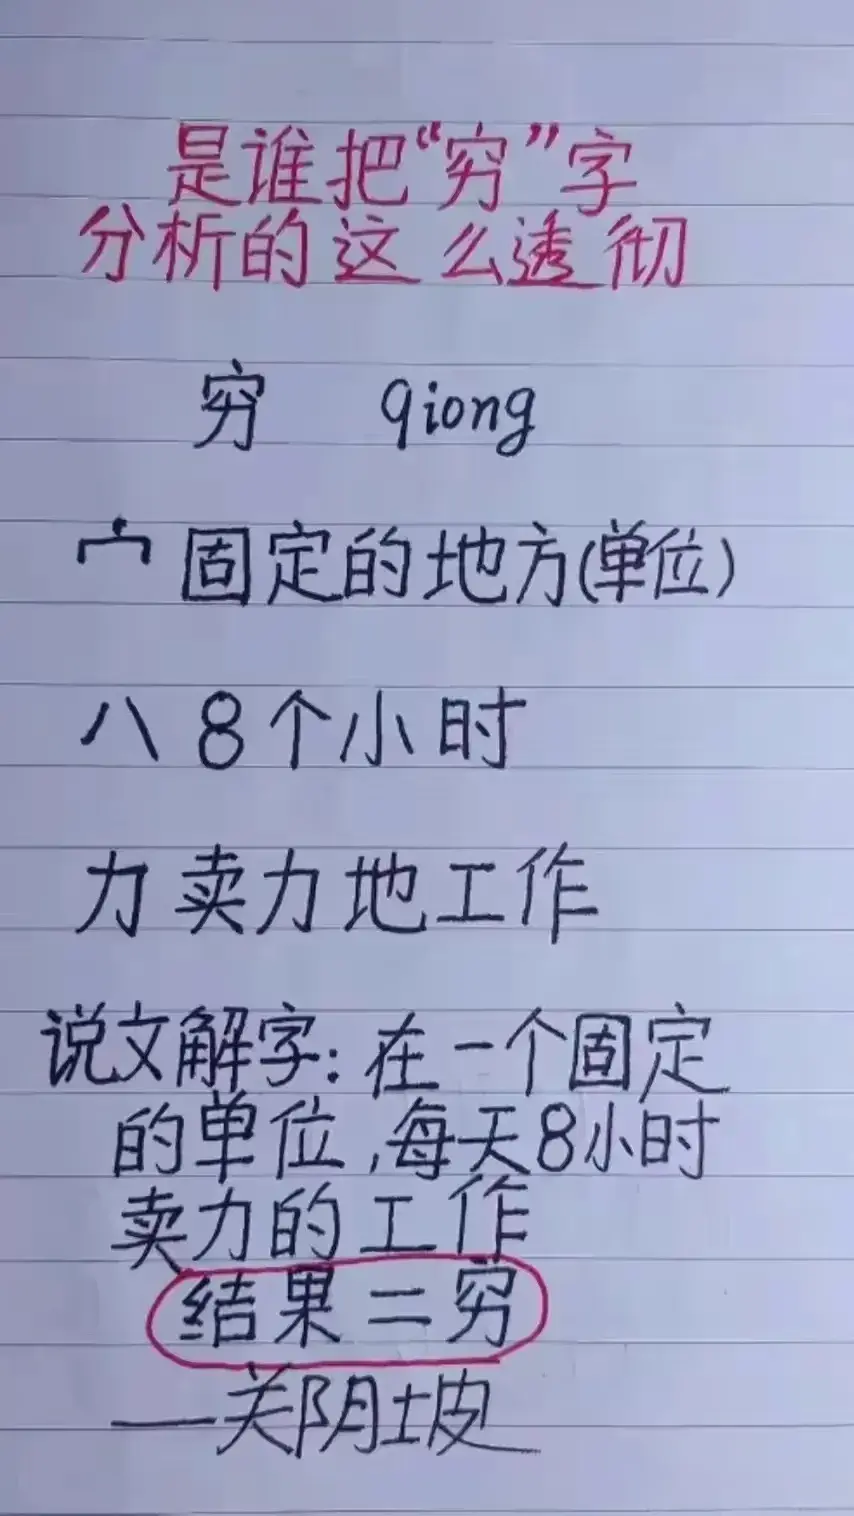 是谁把“穷”字
分析的这么透彻
穷 qiong
宀 固定的地方(单位)
八 8个小时
力 卖力地工作
说文解字:在一个固定
的单位,每天8小时
卖力的工作
结果=穷